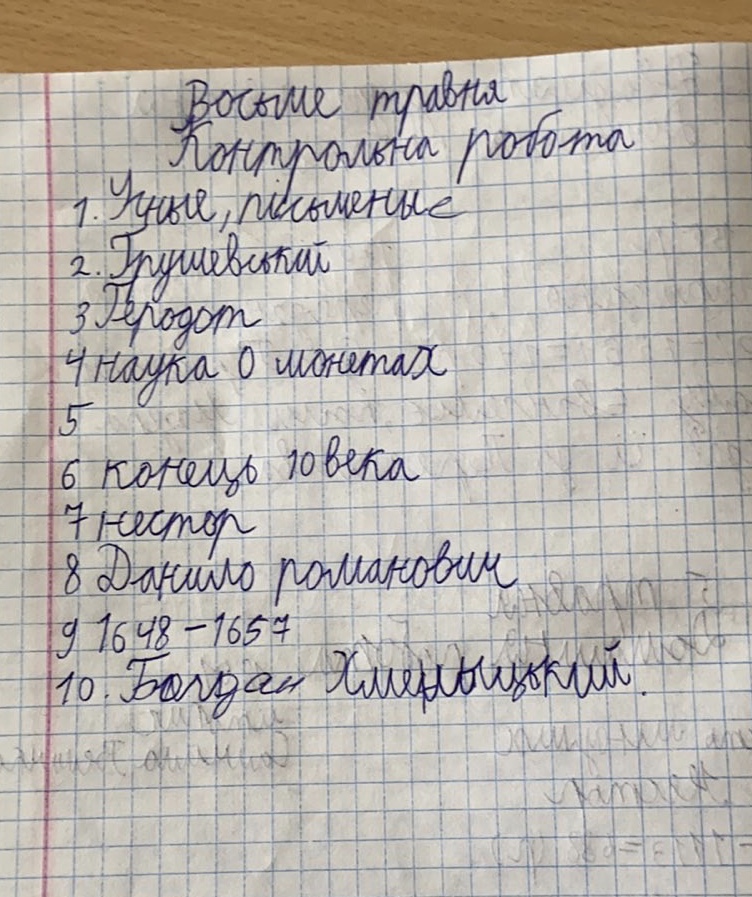 Восьме травня
Контрольна робота
1. Уные, письменые
2. Грушевський
3 Геродот
4 наука о монетах
5
6 конець 10 века
7 нестор
8 Данило романович
9 1648 - 1657
10. Богдан Хмельницький.